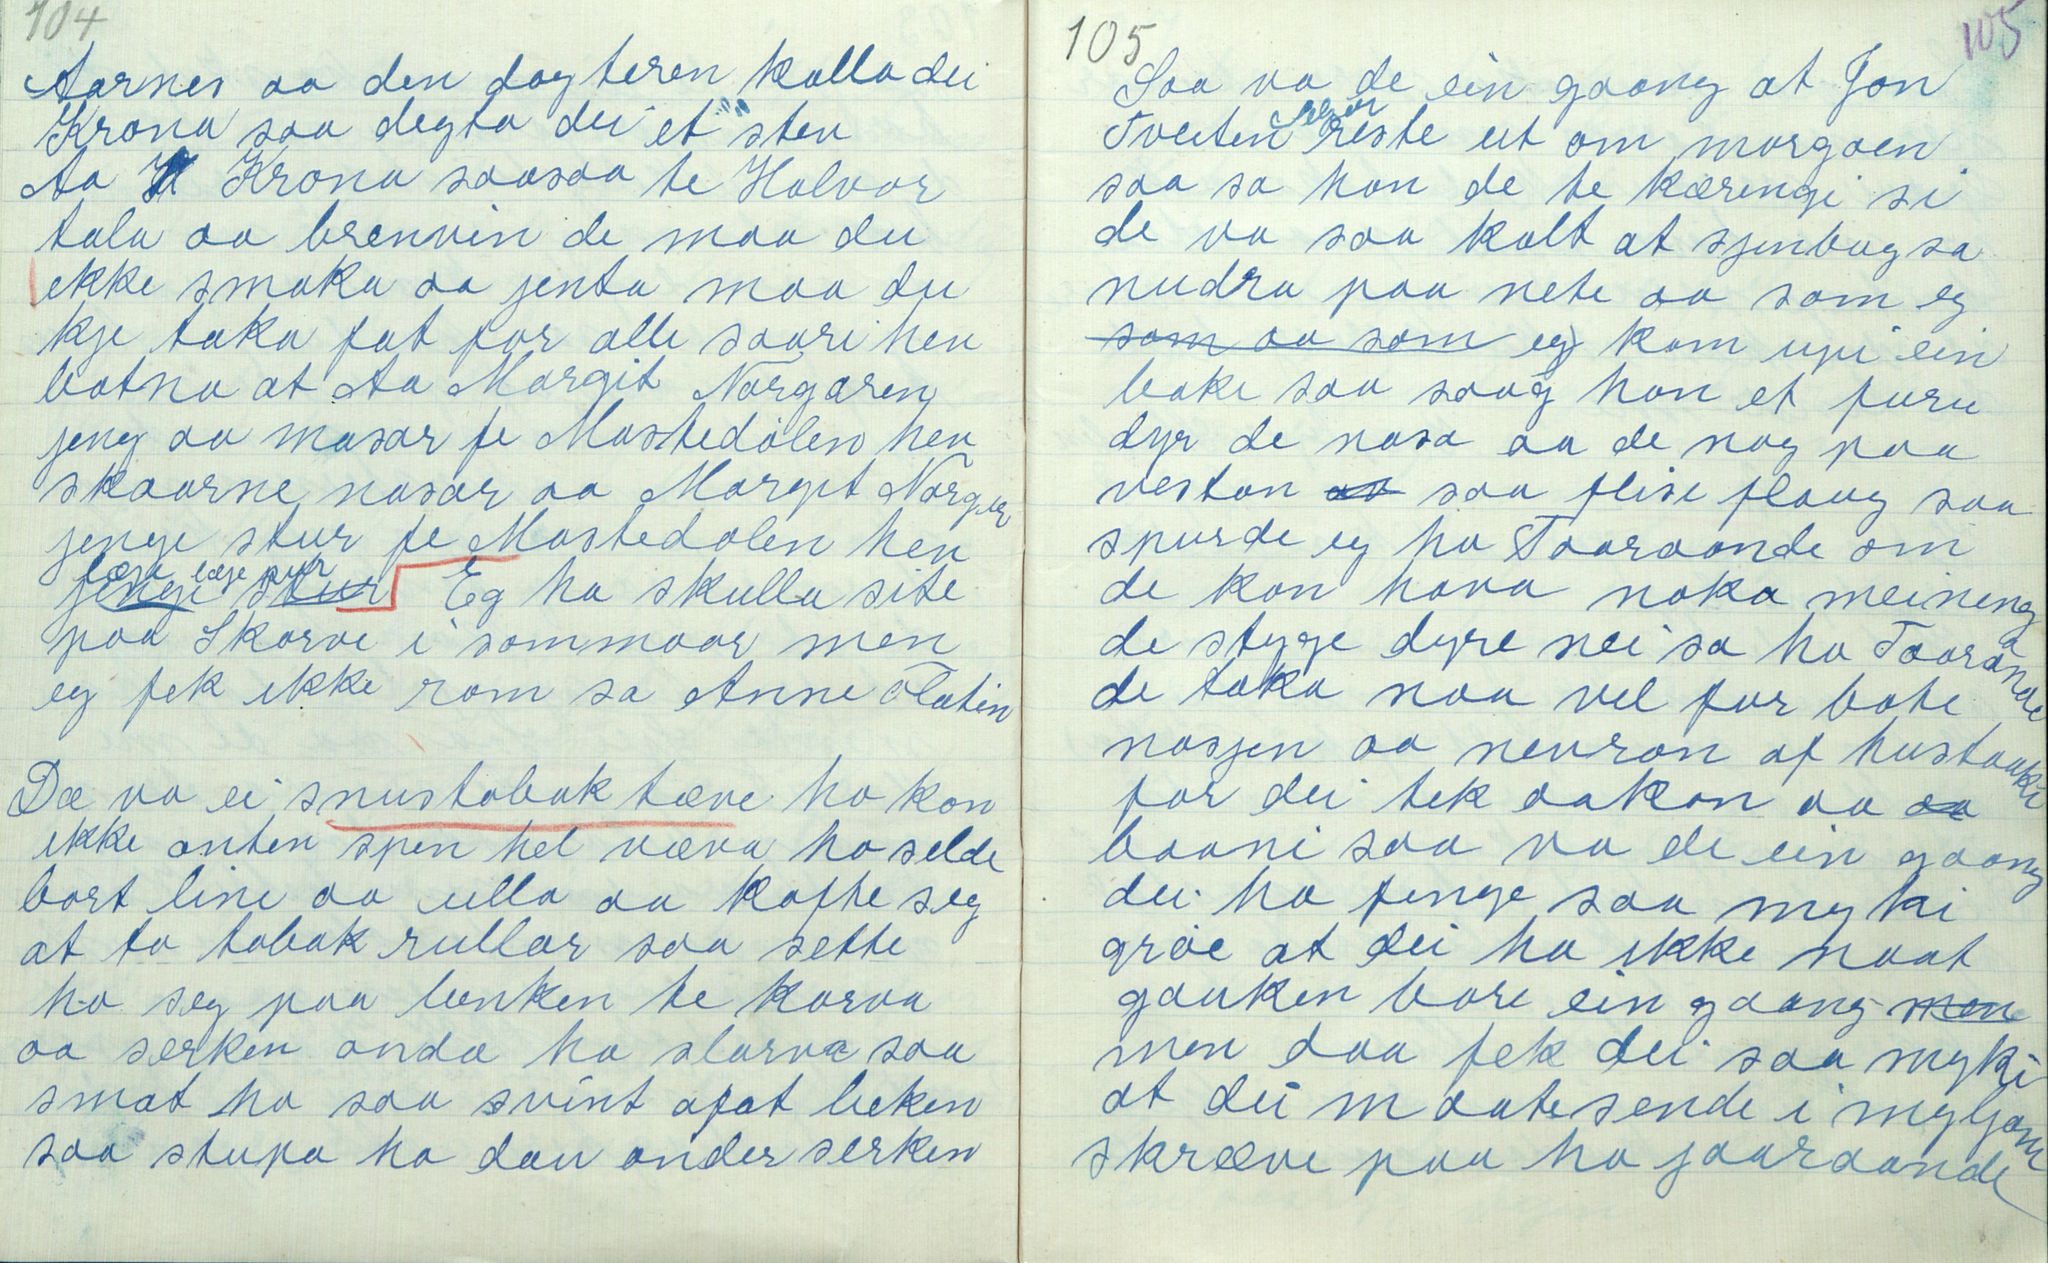 104
Aarnes aa den dagteren kalla dei
Krona saa degta dei et stev
Aa Krona saasaa te Halvor
tala aa brenvin de maa du
ekke smaka aa jenta maa du
kje taka fat for alle saari hev
batna at Aa Margit Norgaren
jeng aa masar fe Mostedølen hev
skaarne nasar aa Margit Norgar
jenge stur fe Mostedølen hev
læse læse pur
jenge stur Eg ha skulla site
paa Skorve i sommaar men
eg fek ikke rom sa Anne Flatin
Dæ va ei snustobak tæve ho kon
ikke anten spen hel væva ho selde
bort line aa ulla aa kafte seg
at to tobak rullar saa sette
ho seg paa benken te karva
aa serken onda ho slarva saa
smat ho saa svint afat beken
saa stupa ho dau onder serken
105
105
Saa va de ein gaang at Jon
Tveiten reste ut om morgaen
saa sa han de te kærengi si
de va saa kalt at sjenbogsa
nudra paa nete aa som eg
som aa som eg kom upi ein
bake saa saag han et furu
dyr de nasa aa de nog paa
veston aa saa flise flaug saa
spurde eg ho Taaraande om
de kon hava noka meineng
de stygge dyre nei sa ho Taaraande
de taka naa vel for bate
nosjen aa nevron af hustaaki
for dei tek aakon aa aa
baani saa va de ein gaang
dei ha fenge saa myki
grøe at dei ha ikke naat
gauken bare ein gaang men
men daa fek dei saa myki
at dei maatesende i myljom
skræve paa ho jaaraande